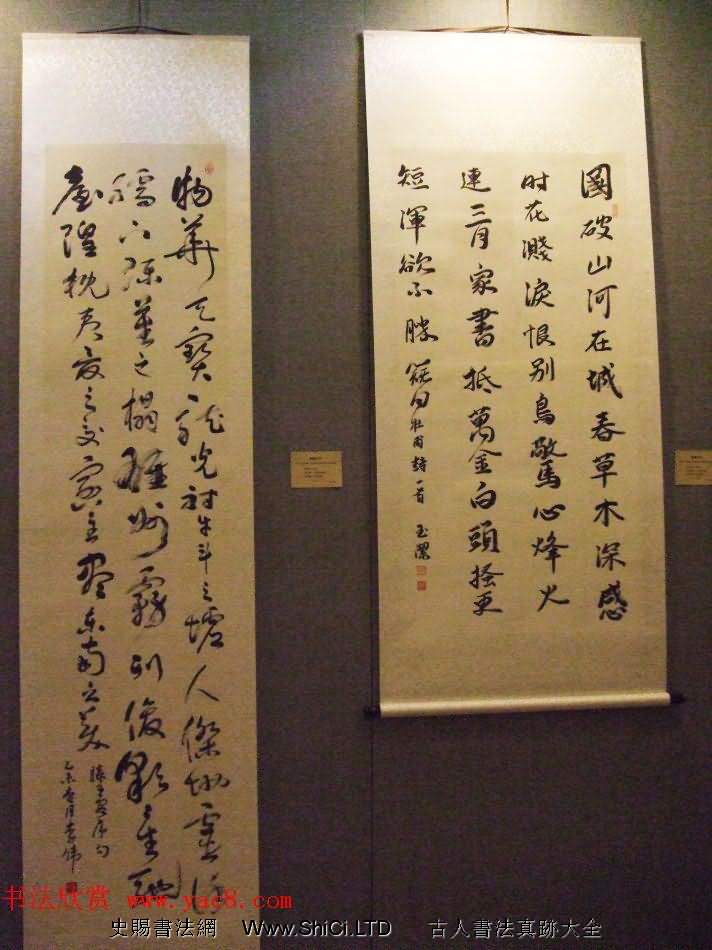 國破山河在城春草木深感
时花濺淚恨别鳥驚心烽火
連三月家書抵萬金白頭搔更
短渾欲不勝簪 杜甫詩一首 玉潔
物華天寶龍光射牛斗之墟人傑地靈徐
孺下陳蕃之榻雄州霧列俊彩星馳
臺隍枕夷夏之交賓主盡東南之美
滕王閣序句
书法欣赏 www.yac8.com
史賜書法網 www.ShiCi.LTD 古人書法真跡大全